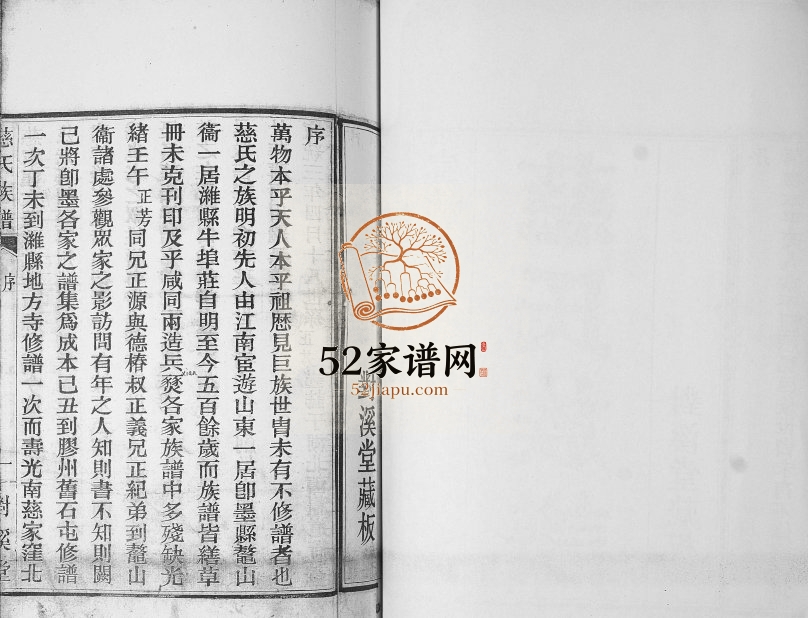 溪堂藏板
序
萬物本乎天人本乎祖歷見巨族世胄未有不修譜者也
慈氏之族明初先人由江南宦遊山東一居卽墨縣鼇山
衞一居濰縣牛埠莊自明至今五百餘歲而族譜皆繕草
冊未克刊印及乎咸同兩造兵燹各家族譜中多殘缺光
緒王午正芳同兄正源與德椿叔正義兄正紀弟到鼇山
衞諸處參觀眾家之影訪問有年之人知則書不知則闕
己將卽墨各家之譜集爲成本已丑到膠州舊石屯修譜
一次丁未到濰縣地方寺修譜一次而壽光南慈家窪北
慈氏族譜
序
一
對溪堂
52家谱网
52jiapu.com